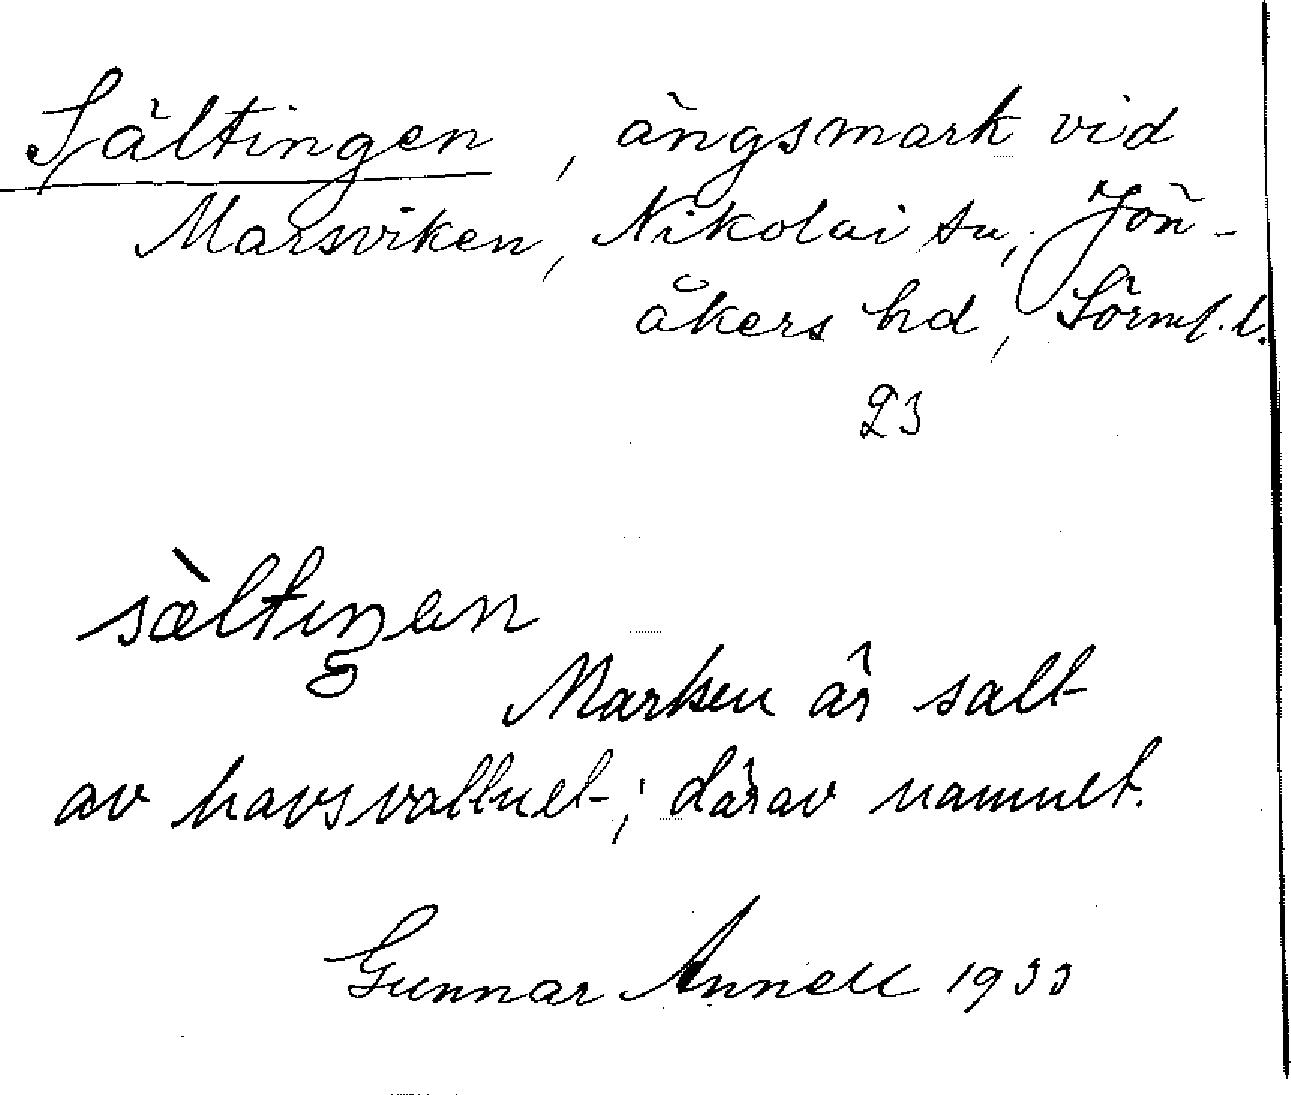 Sältingen, ängsmark vid
Marsviken, Nikolai sn, Jön-
åkers hd, Sörml. l.
23
sæ̀ltiŋən
Marken är salt
av havsvattnet; därav namnet.
Gunnar Annell 1933